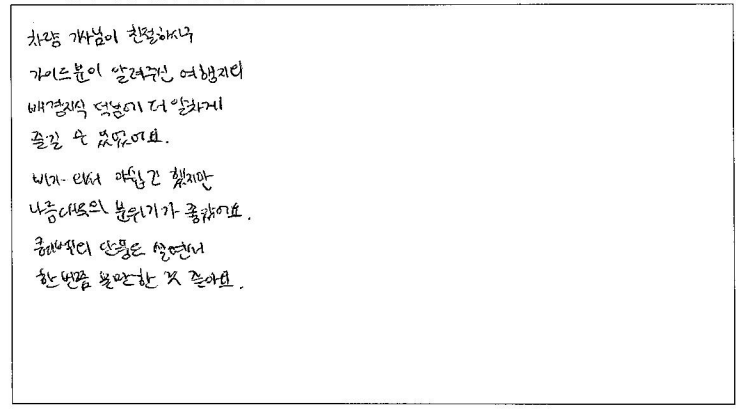 차량 기사님이 친절하시구
가이드분이 알려주신 여행지의
배경지식 덕분에 더 알차게
즐길 수 있었어요.
비가 와서 아쉽긴 했지만
나름대로의 분위기가 좋았어요.
단풍도
한 번쯤 볼만한 것 같아요.